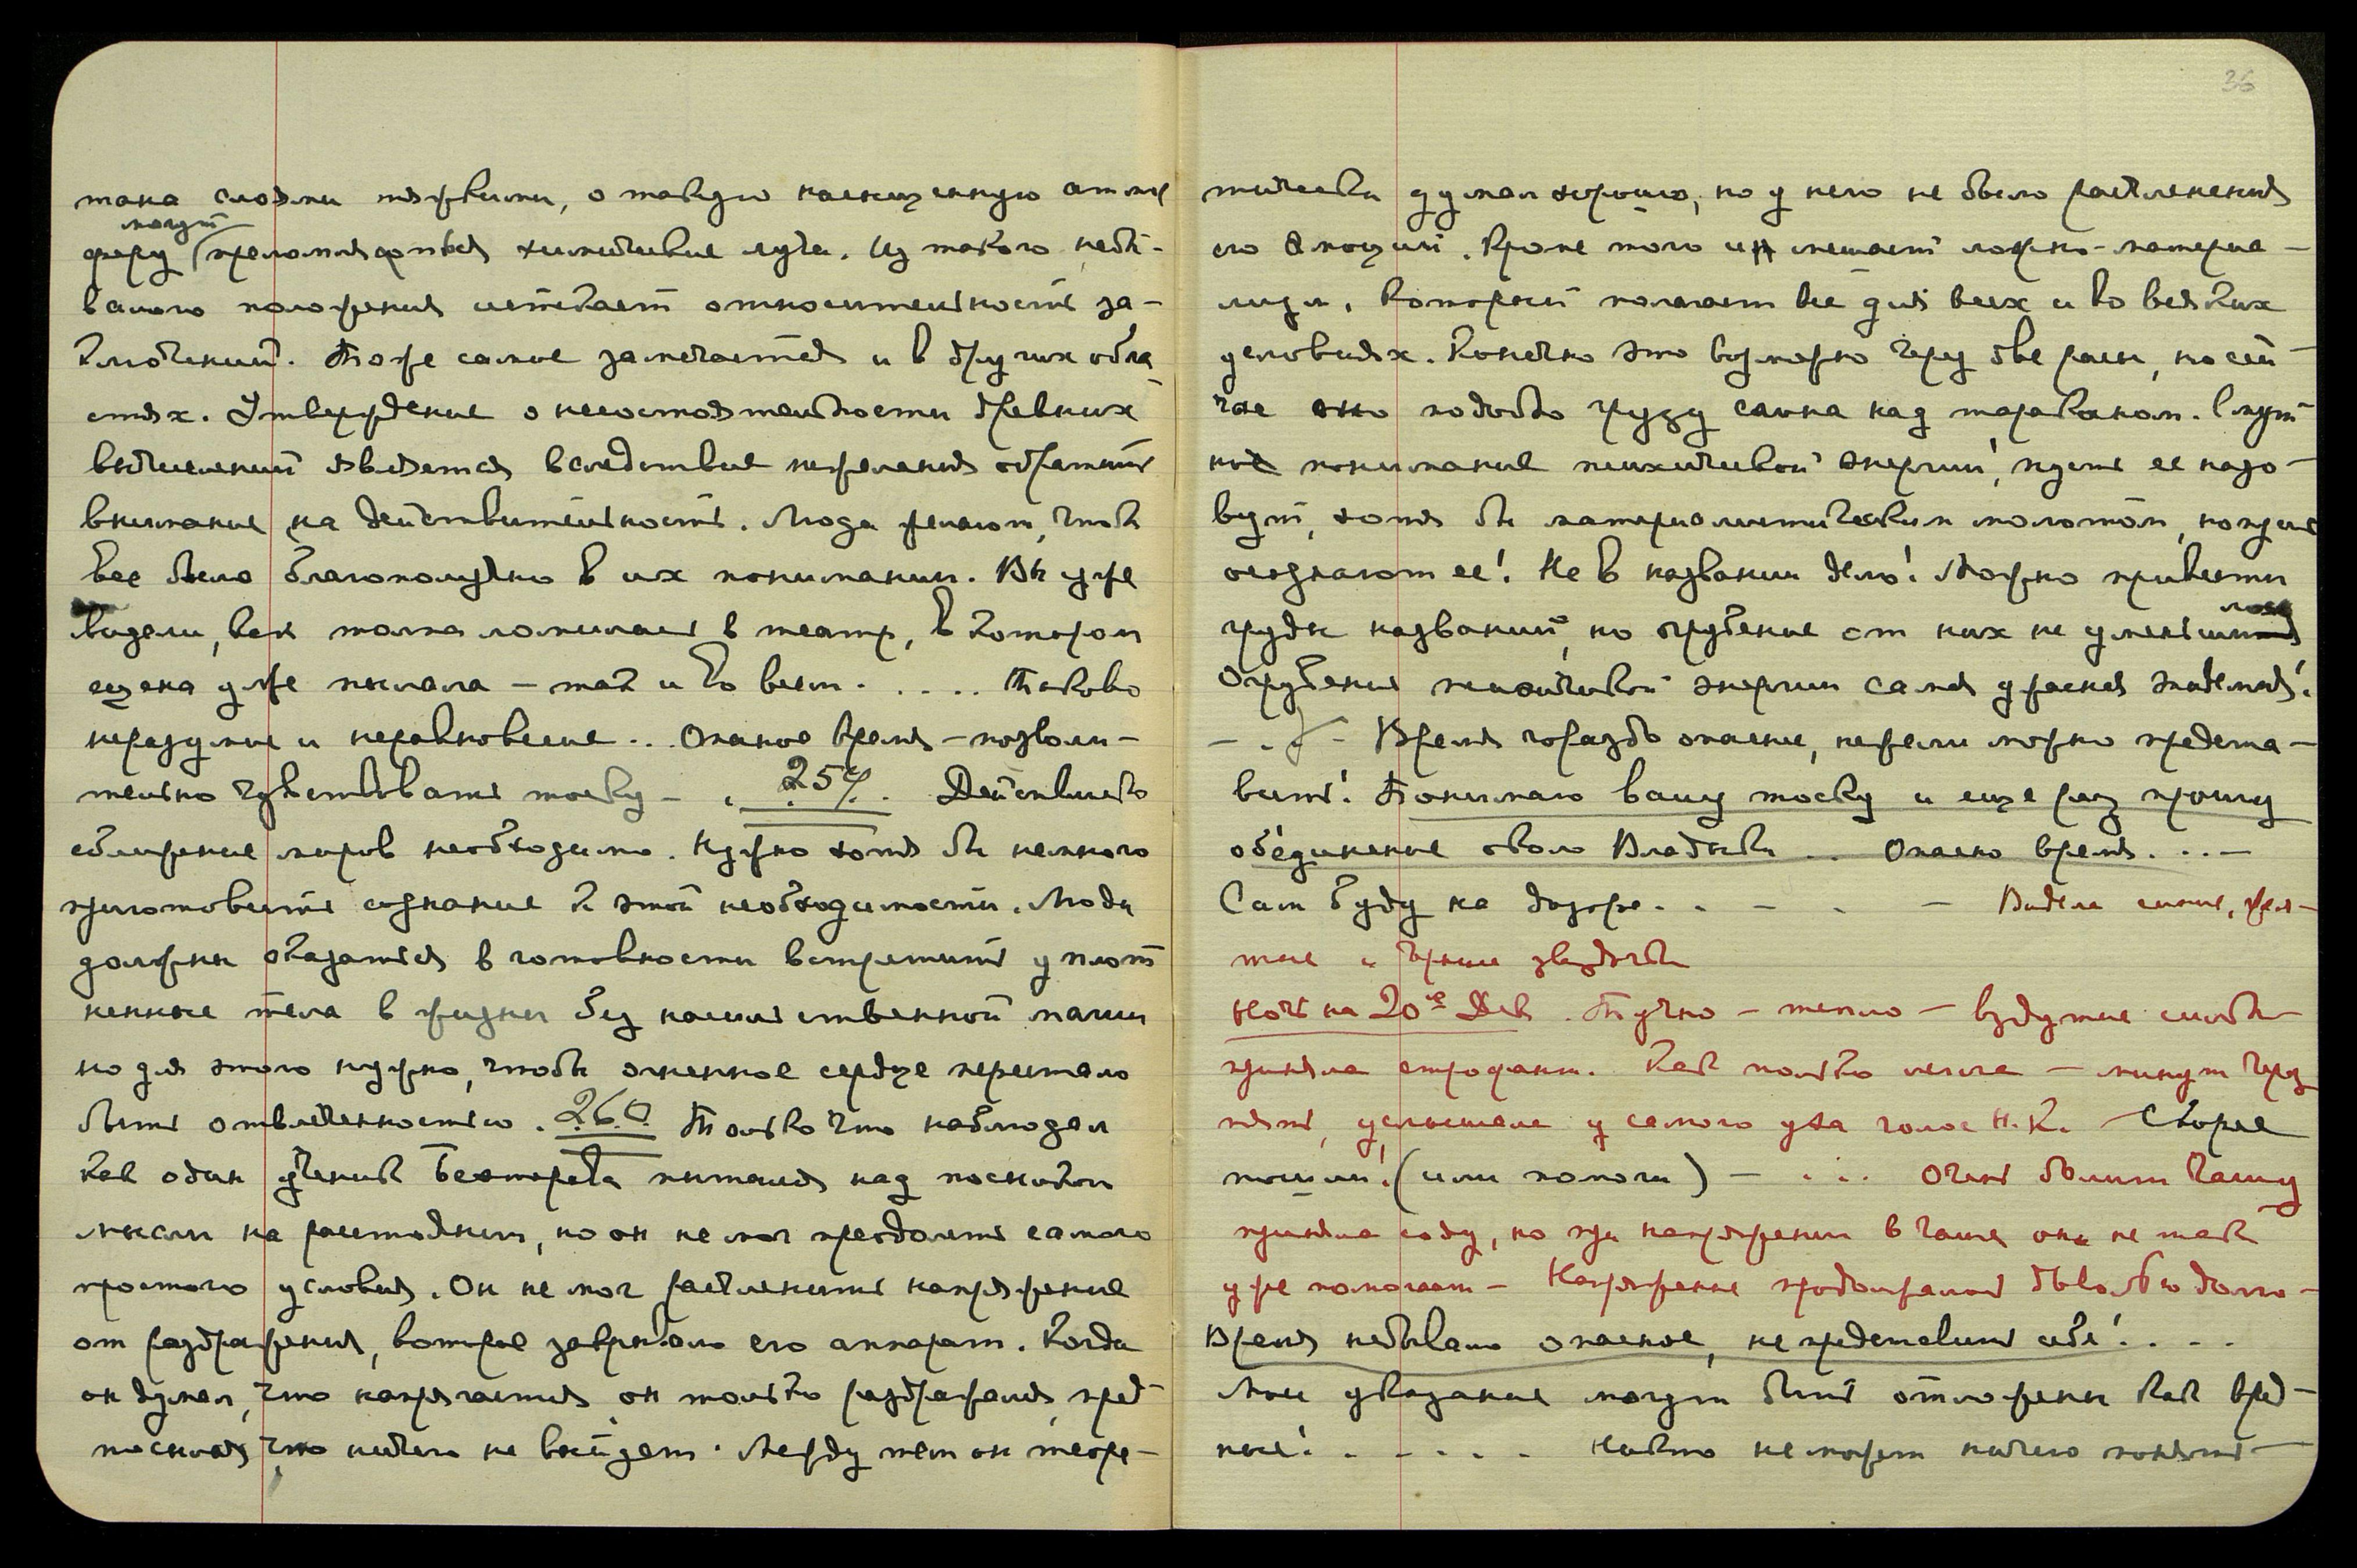 36
тана слоями тяжкими, о такую насыщенную атмос
могут
феру преломляться химические лучи. Из такого небы-
валого положения истекает относительность за-
ключений. То же самое замечается и в других обла
стях. Утверждение о несостоятельности древних
вычислений является вследствие нежелания обратить
внимание на действительность. Люди желают, чтобы
все было благополучно в их понимании. Вы уже
видели, как толпа ломилась в театр, в котором
сцена уже пылала – так и во всем. .... Таково
неразумие и неравновесие .. Опасное время – позволи-
тельно чувствовать тоску – . 259. Действительно
сближение миров необходимо. Нужно хотя бы немного
приготовить сознание к этой необходимости. Люди
должны оказаться в готовности встретить уплот
ненные тела в жизни без насильственной магии
но для этого нужно, чтобы огненное сердце перестало
быть отвлеченностью. 260 Только что наблюдал
как один ученик Бехтерева пытался над посылкою
мысли на расстоянии, но он не мог преодолеть самого
простого условия. Он не мог расчленить напряжение
от раздражения, которое закрывало его аппарат. Когда
он думал, что напрягается он только раздражался, пред
посылая что ничего не выйдет. Между тем он теоре-
тически думал хорошо, но у него не было расчленения
его эмоций. Кроме того им мешает ложно-материа-
лизм, который полагает все для всех и во всяких
условиях. Конечно это возможно через две расы, но сей
час оно подобно грузу слона над тараканом. Смут
ное понимание психической энергии, пусть ее назо-
вут, хотя бы материалистическим молотом, но пусть
осознают ее! Не в названии дело! Можно привести
груды названий, но огрубение от них не уменьшилось
Огрубение психической энергии самая ужасная эпидемия!
Время гораздо опаснее, нежели можно предста-
вить! Понимаю вашу тоску и еще раз прошу
объединение около Владыки .. Опасно время. ...
Сам буду на дозоре. . – . – Видела синие, жел-
тые и черные звездочки
Ночь на 20ое Дек. Тучно – тепло – вздутие сильное
приняла строфант. Как только легла – минут через
пять, услышала у самого уха голос Н.К. – Скорее
пошли! (или помоги) – ... Очень болит чашу
приняла соду, но при напряжении в чаше она не так
уже помогает – Напряжение продолжалось довольно долго –
Время небывало опасное, не представить себе! ....
Мои указания могут быть отложены как вред-
ные! . – . – . Никто не может ничего понять –